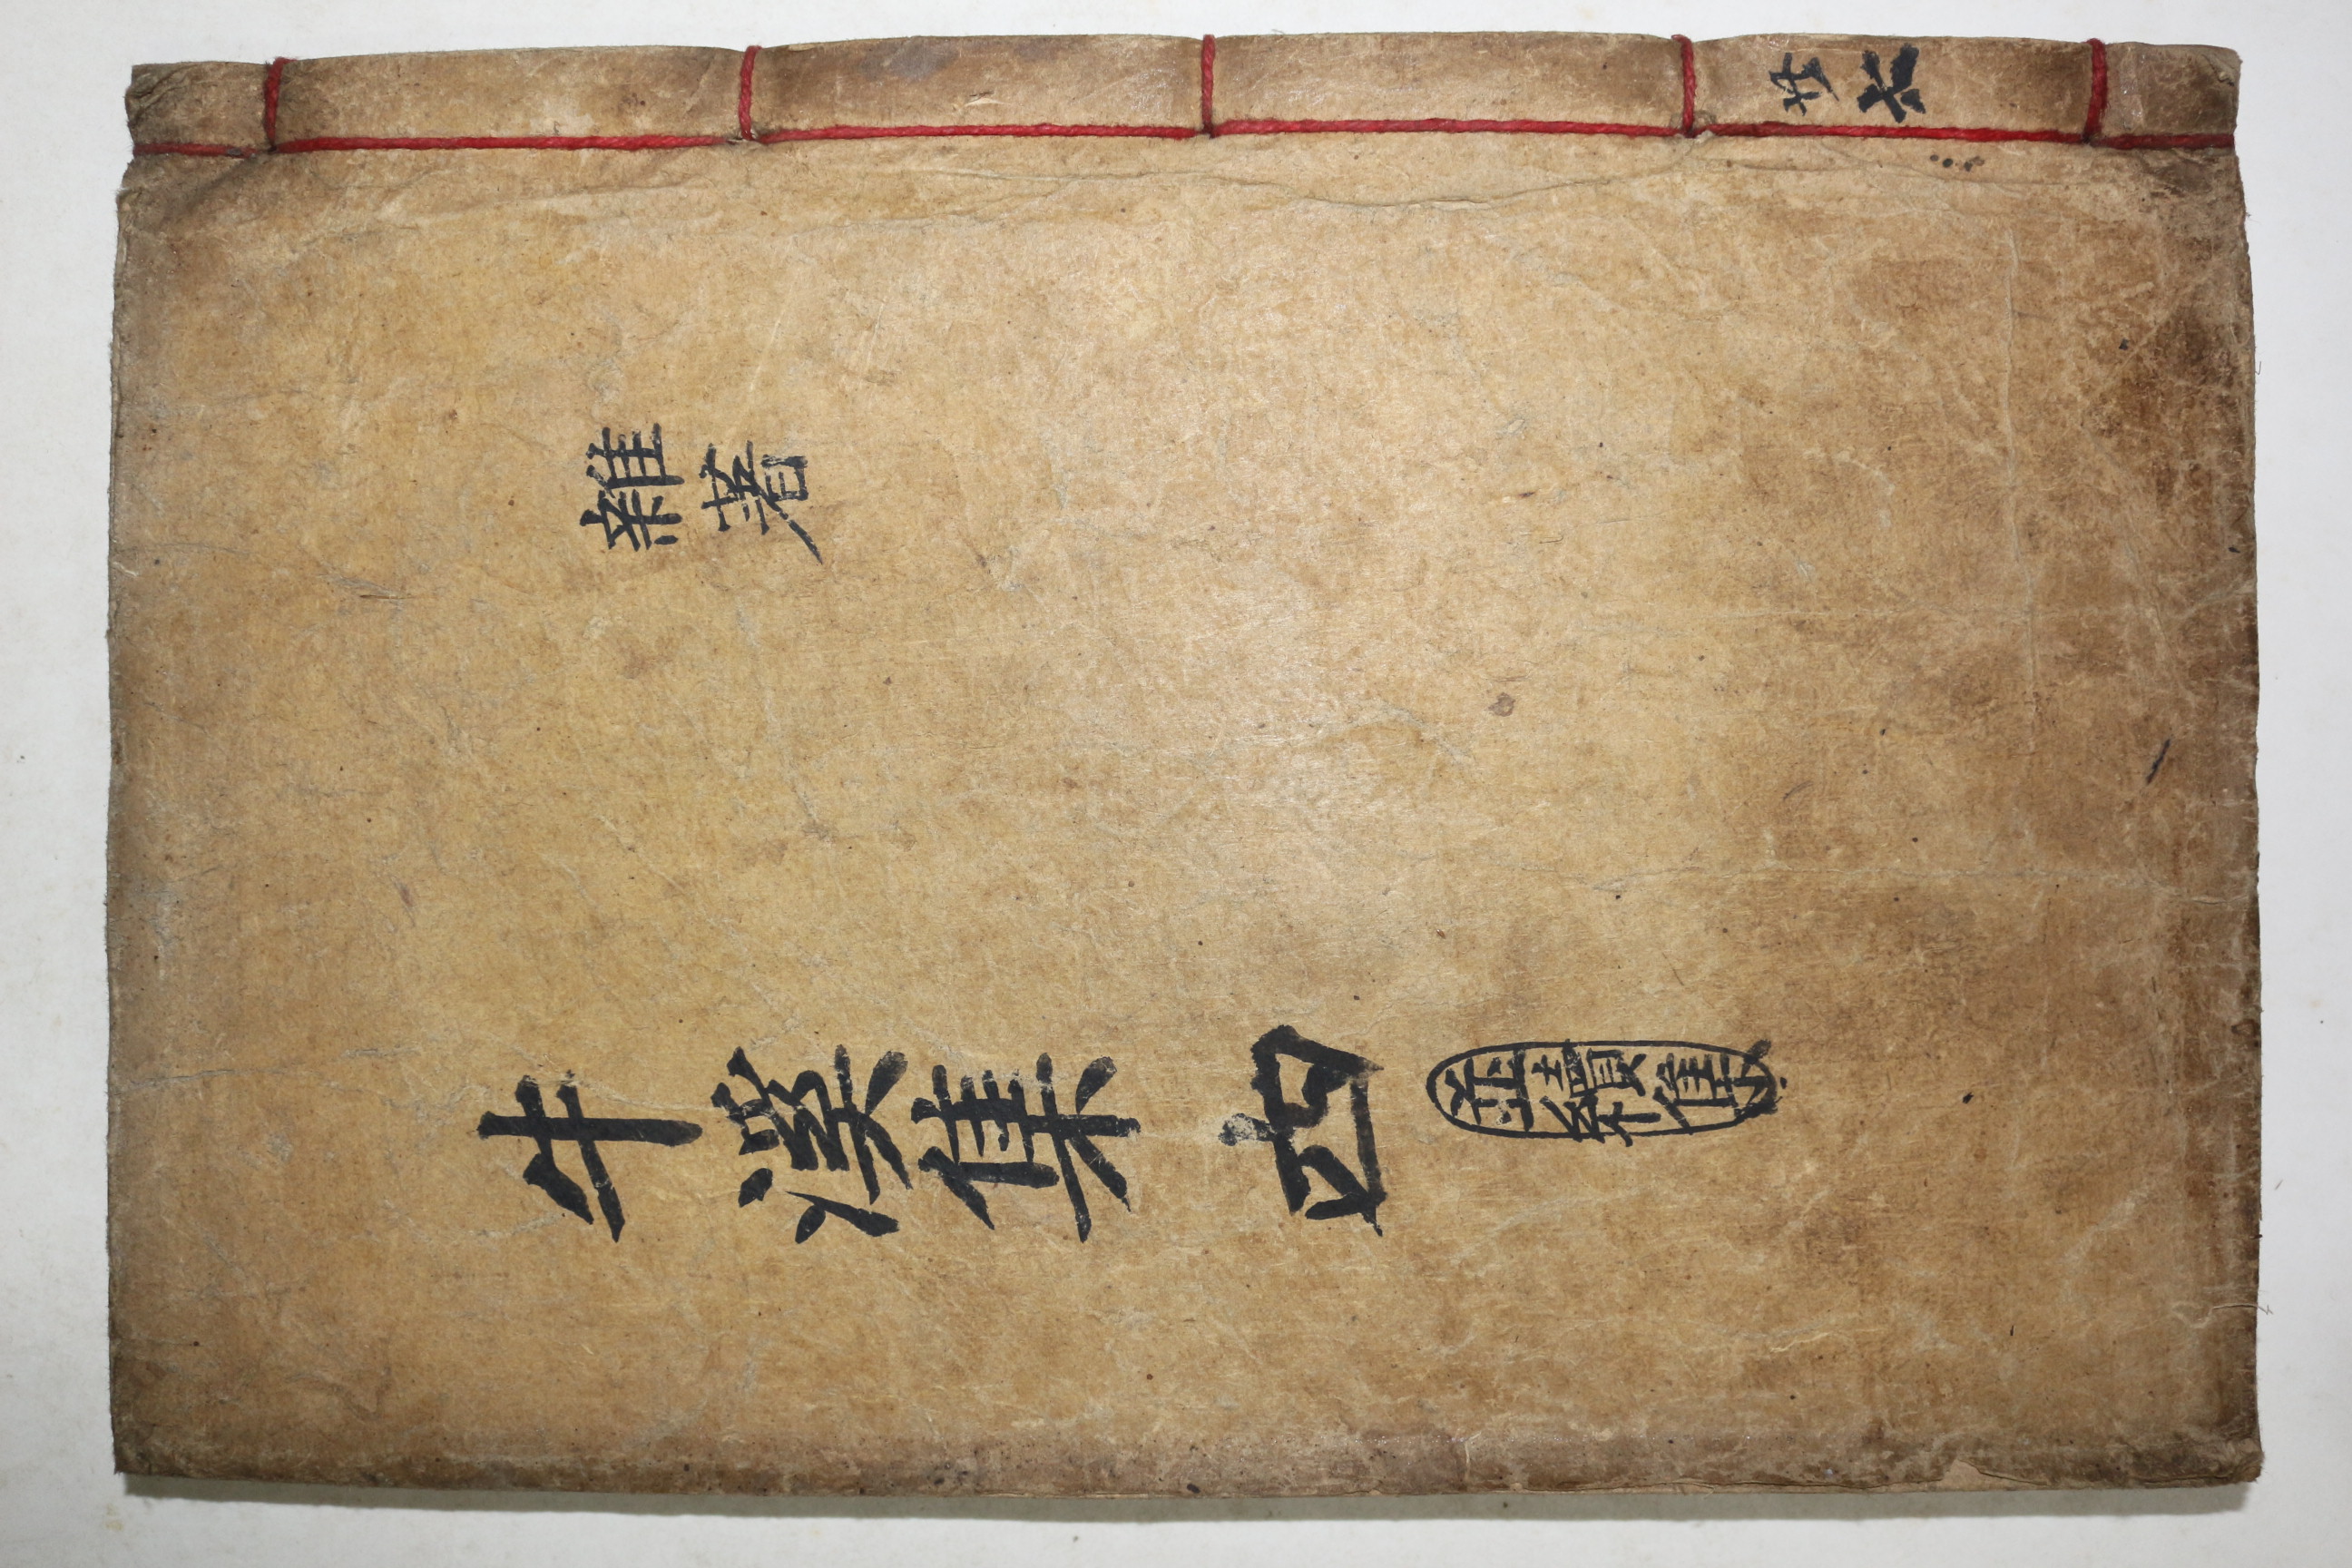 雜著
牛溪集 四
並續集
共六